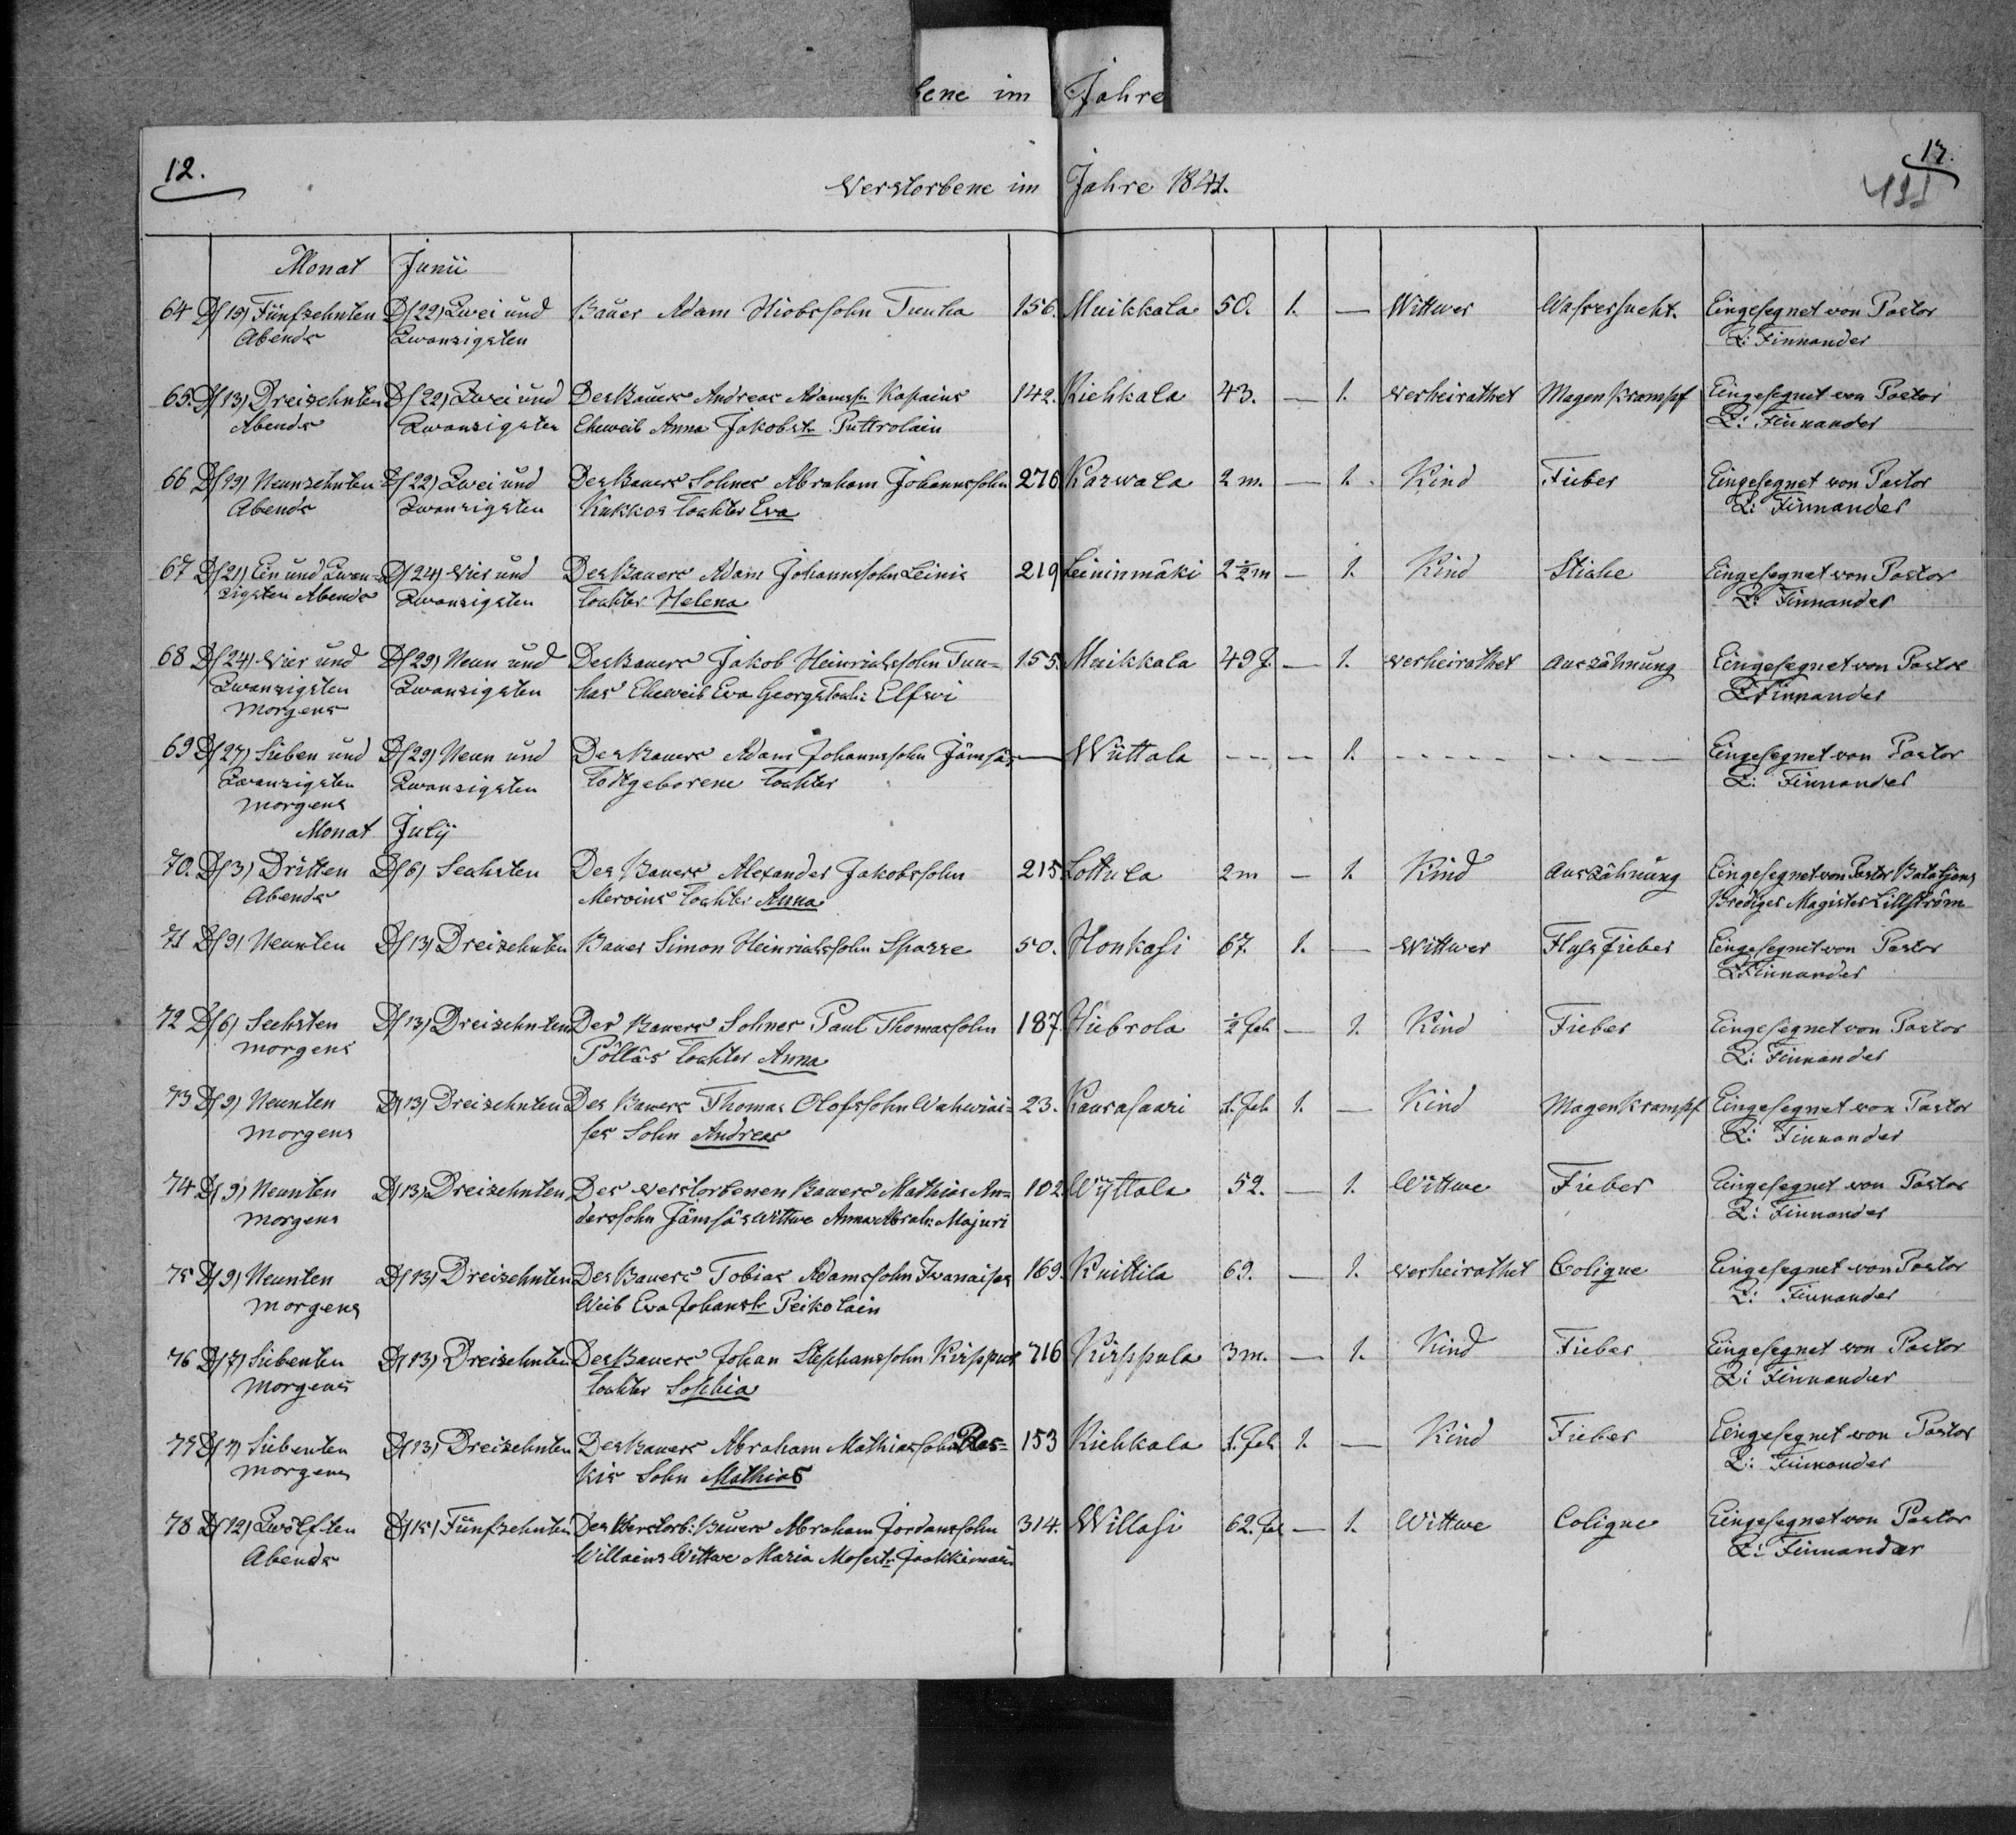 bene im Jahre
12.
17.
Verstorbene im Jahre 1841.
Monat Junii
64 D(15) Fünfzehnten D(22) Zwei und Bauer Adam Hiobssohn Tuuha 156. Muikkala 50. 1. — Wittwer Wassersucht. Eingesegnet von Pastor
Abends Zwanzigsten Z: Finnander
65. D(13) Dreizehnten D(22) Zwei und Des Bauers Andreas Adamss: Kapains 142. Kiehkala 43. — 1. verheirathet Magen Krampf Eingesegnet von Pastor
Abends Zwanzigsten Eheweib Anna Jakobst: Puttrolain Z: Finnander
66 D(19) Neunzehnten D(22) Zwei und Des Bauers Sohnes Abraham Johannssohn 276 Karwala 2 m. — 1. Kind Fieber Eingesegnet von Pastor
Abends Zwanzigsten Kukkos Tochter Eva Z: Finnander
67 D(21) Ein und Zwan= D(24) Vier und Des Bauers Adam Johannssohn Leinis 219 Leininmäki 2½ m — 1. Kind Stiche Eingesegnet von Pastor
zigsten Abends Zwanzigsten Tochter Helena Z: Finnander
68 D(24) Vier und D(29) Neun und Des Bauers Jakob Heinrichssohn Tuu= 155. Muikkala 49 J. — 1. verheirathet Auszähnung Eingesegnet von Pastor
Zwanzigsten Zwanzigsten has Eheweib Eva Georgs Toch: Elfwi Z: Finnander
Morgens
69 D(27) Sieben und D(29) Neun und Des Bauers Adam Johannssohn Jämsäs — Wüttala - - - — 1. - - - - - - - - - - Eingesegnet von Pastor
Zwanzigsten Zwanzigsten Todtgeborene Tochter Z: Finnander
Morgens
Monat Julij
70. D(3) Dritten D(6) Sechsten Des Bauers Alexander Jakobssohn 215. Lottula 2 m — 1. Kind Auszähnung Eingesegnet von Pastor Bataljons
Abends Meroins Tochter Anna Prediger Magister Lillström
71 D(9) Neunten D(13) Dreizehnten Bauer Simon Heinrichssohn Sparre 50. Honkasi 67. 1. — Wittwer Flussfieber Eingesegnet von Pastor
Z: Finnander
72 D(6) Sechsten D(13) Dreizehnten Des Bauers Sohnes Paul Thomassohn 187. Hiebrola ½ Jah — 1. Kind Fieber Eingesegnet von Pastor
Morgens Pölläs Tochter Anna Z: Finnander
73 D(9) Neunten D(13) Dreizehnten Des Bauers Thomas Olofssohn Wahwiai= 23. Kaurasaari 1. Jah 1. — Kind Magen Krampf Eingesegnet von Pastor
Morgens ses Sohn Andreas Z: Finnander
74 D(9) Neunten D(13) Dreizehnten Des verstorbenen Bauers Mathias An= 102. Wÿttala 52. — 1. Wittwe Fieber Eingesegnet von Pastor
Morgens derssohn Jämsäs Wittwe Anna Abrah: Majuri Z: Finnander
75 D(9) Neunten D(13) Dreizehnten Des Bauers Tobias Adamssohn Iwanaises 169. Kuittila 69. — 1. verheirathet Colique Eingesegnet von Pastor
Morgens Weib Eva Johanst: Peikolain Z: Finnander
76 D(7) Siebenten D(13) Dreizehnten Des Bauers Johan Stephanssohn Kirppus 716 Kirppula 3 m. — 1. Kind Fieber Eingesegnet von Pastor
Morgens Tochter Sophia Z: Finnander
77 D(7) Siebenten D(13) Dreizehnten Des Bauers Abraham Mathiassohn Ras= 153 Kiehkala 1. Jah 1. — Kind Fieber Eingesegnet von Pastor
Morgens kis Sohn Mathias Z: Finnander
78 D(12) Zwölften D(15) Fünfzehnten Des Verstorb: Bauers Abraham Jordanssohn 314. Willasi 62. Jah — 1. Wittwe Colique Eingesegnet von Pastor
Abends Willains Wittwe Maria Mosest: Z: Finnander